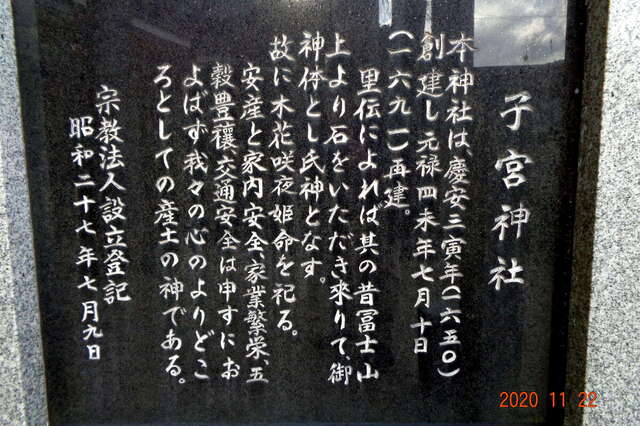 子宮神社
本神社は、慶安三寅年(一六五〇)
創建し元禄四未年七月十日
(一六九一)再建。
里伝によれば其の昔冨士山
上より石をいただき来りて、御
神体とし氏神となす。
故に木花咲夜姫命を祀る。
安産と家内安全、家業繁栄、五
穀豊穣、交通安全は申すにお
よばず我々の心のよりどこ
ろとしての産土の神である。
宗教法人設立登記
昭和二十七年七月九日
2020 11 22